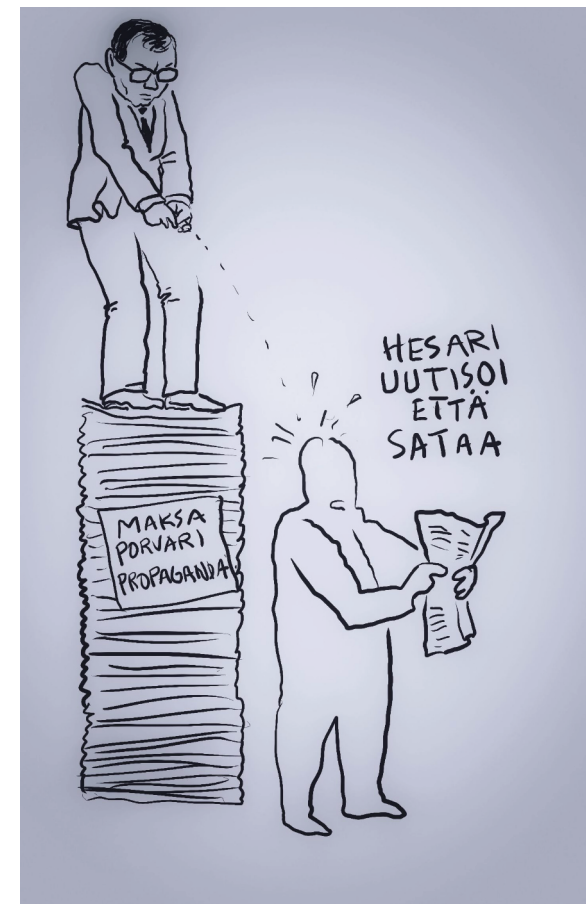 HESARI
UUTISOI
ETTÄ
SATAA
MAKSA
PORVARI
PROPAGANDA